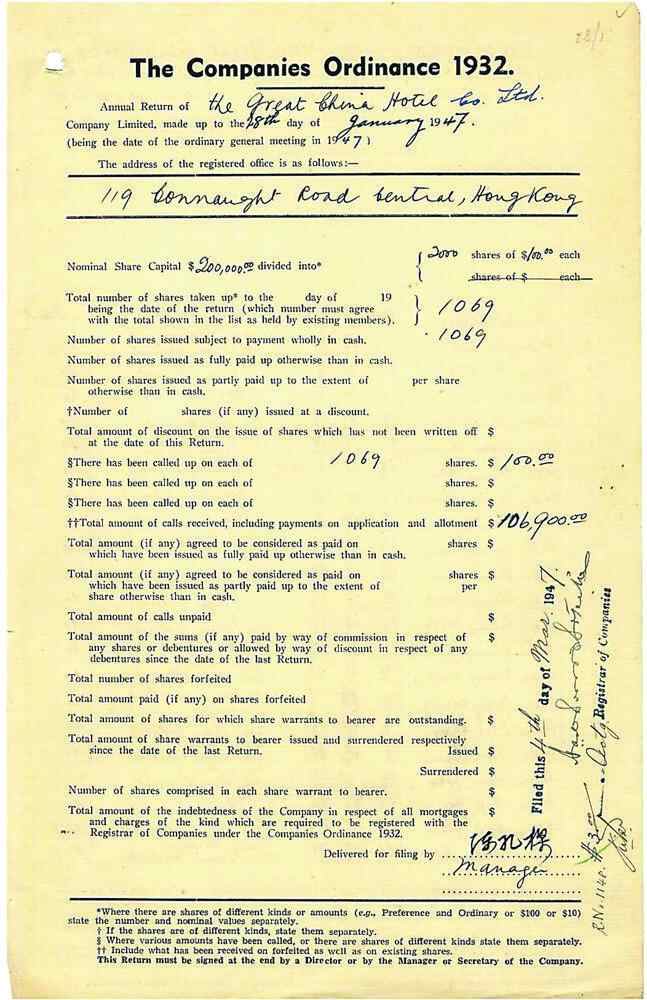 22/1
The Companies Ordinance 1932.
Annual Return of the Great China Hotel Co. Ltd.
Company Limited, made up to the 28th day of January 1947.
(being the date of the ordinary general meeting in 1947)
The address of the registered office is as follows:—
119 Connaught Road Central, Hong Kong
Nominal Share Capital $200,000.00 divided into* { 2000 shares of $100.00 each
shares of $ each
Total number of shares taken up* to the day of 19
being the date of the return (which number must agree } 1069
with the total shown in the list as held by existing members).
Number of shares issued subject to payment wholly in cash. 1069
Number of shares issued as fully paid up otherwise than in cash.
Number of shares issued as partly paid up to the extent of per share
otherwise than in cash.
†Number of shares (if any) issued at a discount.
Total amount of discount on the issue of shares which has not been written off $
at the date of this Return.
§There has been called up on each of 1069 shares. $ 100.00
§There has been called up on each of shares. $
§There has been called up on each of shares. $
††Total amount of calls received, including payments on application and allotment $ 106,900.00
Total amount (if any) agreed to be considered as paid on shares $
which have been issued as fully paid up otherwise than in cash.
Total amount (if any) agreed to be considered as paid on shares $
which have been issued as partly paid up to the extent of per
share otherwise than in cash.
Total amount of calls unpaid $
Total amount of the sums (if any) paid by way of commission in respect of $
any shares or debentures or allowed by way of discount in respect of any
debentures since the date of the last Return.
Total number of shares forfeited
Total amount paid (if any) on shares forfeited
Total amount of shares for which share warrants to bearer are outstanding. $
Total amount of share warrants to bearer issued and surrendered respectively
since the date of the last Return. Issued $
Surrendered $
Number of shares comprised in each share warrant to bearer.
Total amount of the indebtedness of the Company in respect of all mortgages $
and charges of the kind which are required to be registered with the
Registrar of Companies under the Companies Ordinance 1932.
Delivered for filing by
Manager
Filed this 4th day of Mar. 1947.
Actg Registrar of Companies
R.No. 1140. $3.00
*Where there are shares of different kinds or amounts (e.g., Preference and Ordinary or $100 or $10)
state the number and nominal values separately.
† If the shares are of different kinds, state them separately.
§ Where various amounts have been called, or there are shares of different kinds state them separately.
†† Include what has been received on forfeited as well as on existing shares.
This Return must be signed at the end by a Director or by the Manager or Secretary of the Company.